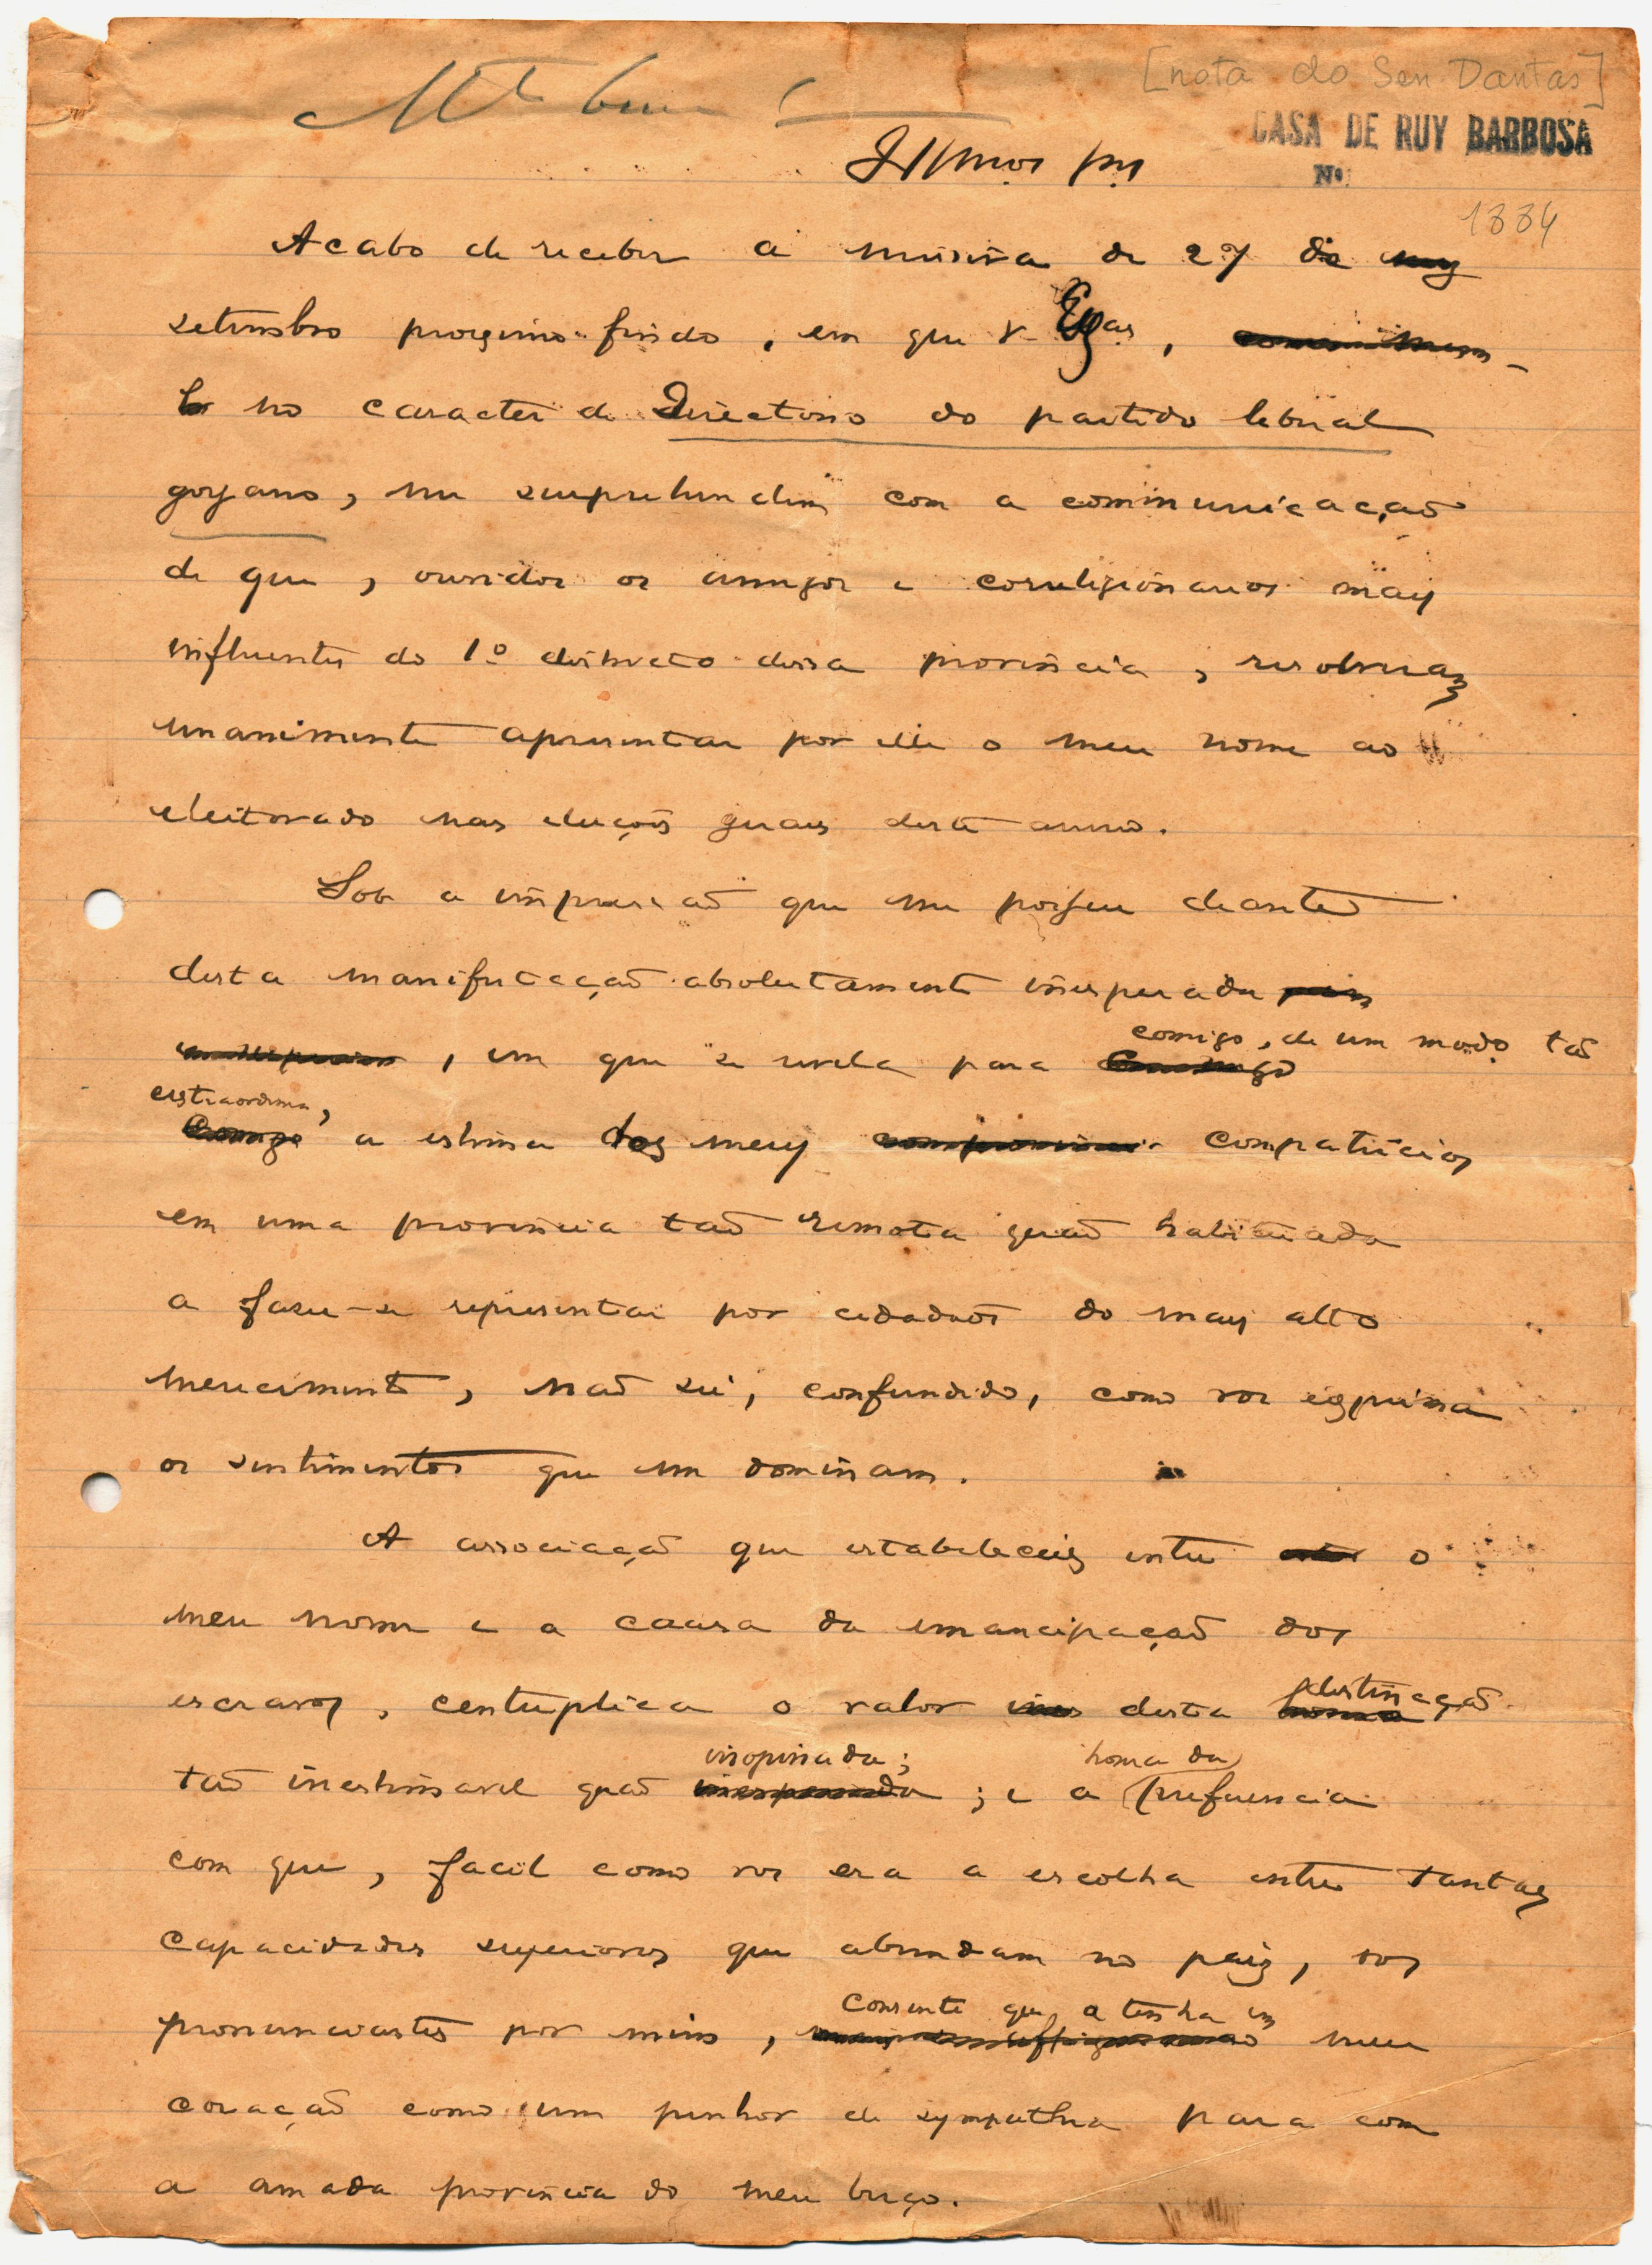 Mto bem
[nota do Sen. Dantas]
CASA DE RUY BARBOSA
No.
1884
Illmos Srs
Acabo de receber a missiva de 27 de
setembro proximo findo, em que V. Exas,
no caracter de Directorio do partido liberal
goyano, me surprehendem com a communicação
de que, ouvidos os amigos e correligionarios mais
influentes do 1º districto dessa provincia, resolveram
unanimemente apresentar por elle o meu nome ao
eleitorado nas eleições geraes deste anno.
Sob a impressão que me possue deante
desta manifestação absolutamente inesperada
, em que se revela para comigo, de um modo tão
extraordinario,
a estima dos meus compatricios
em uma provincia tão remota quão habituada
a fazer-se representar por cidadãos do mais alto
merecimento, não sei, confundido, como vos exprima
os sentimentos que me dominam.
A associação que estabeleceis entre o
meu nome e a causa da emancipação dos
escravos, centuplica o valor desta distincção
tão inestimavel quão inopinada; e a honra da preferencia
com que, facil como vos era a escolha entre tantas
capacidades superiores que abundam no paiz, vos
pronunciastes por mim, consente que a tenha em meu
coração como um penhor de sympathia para com
a amada provincia do meu berço.